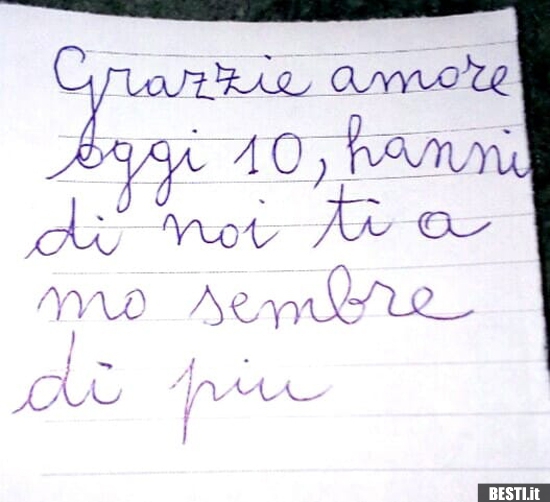 Grazzie amore
oggi 10, hanni
di noi ti a
mo sembre
di piu
BESTI.it